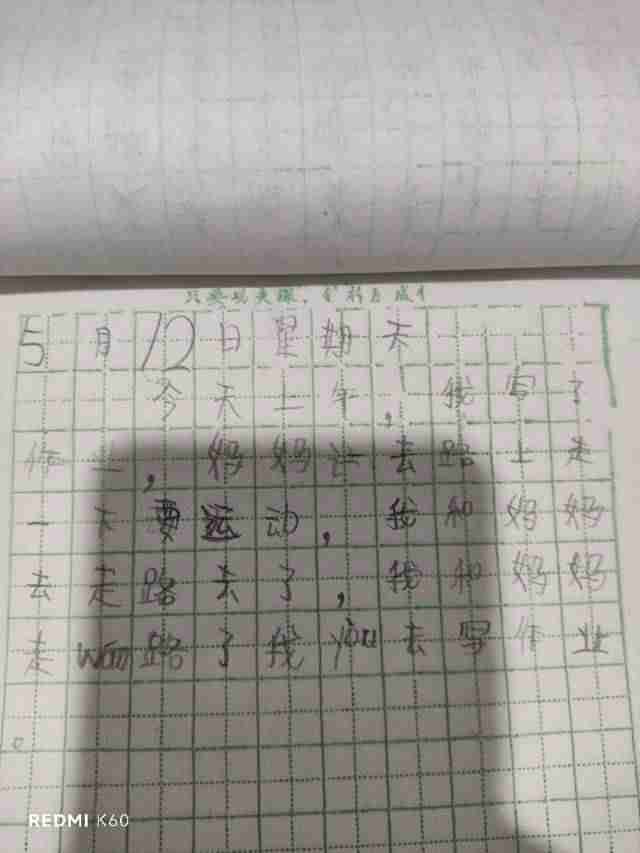 只要
5月12日星期天
今天上午,我写了
作业,妈妈让去路上走
一天要运动,我和妈妈
去走路去了,我和妈妈
走wán路了我yòu去写作业
。
REDMI K60